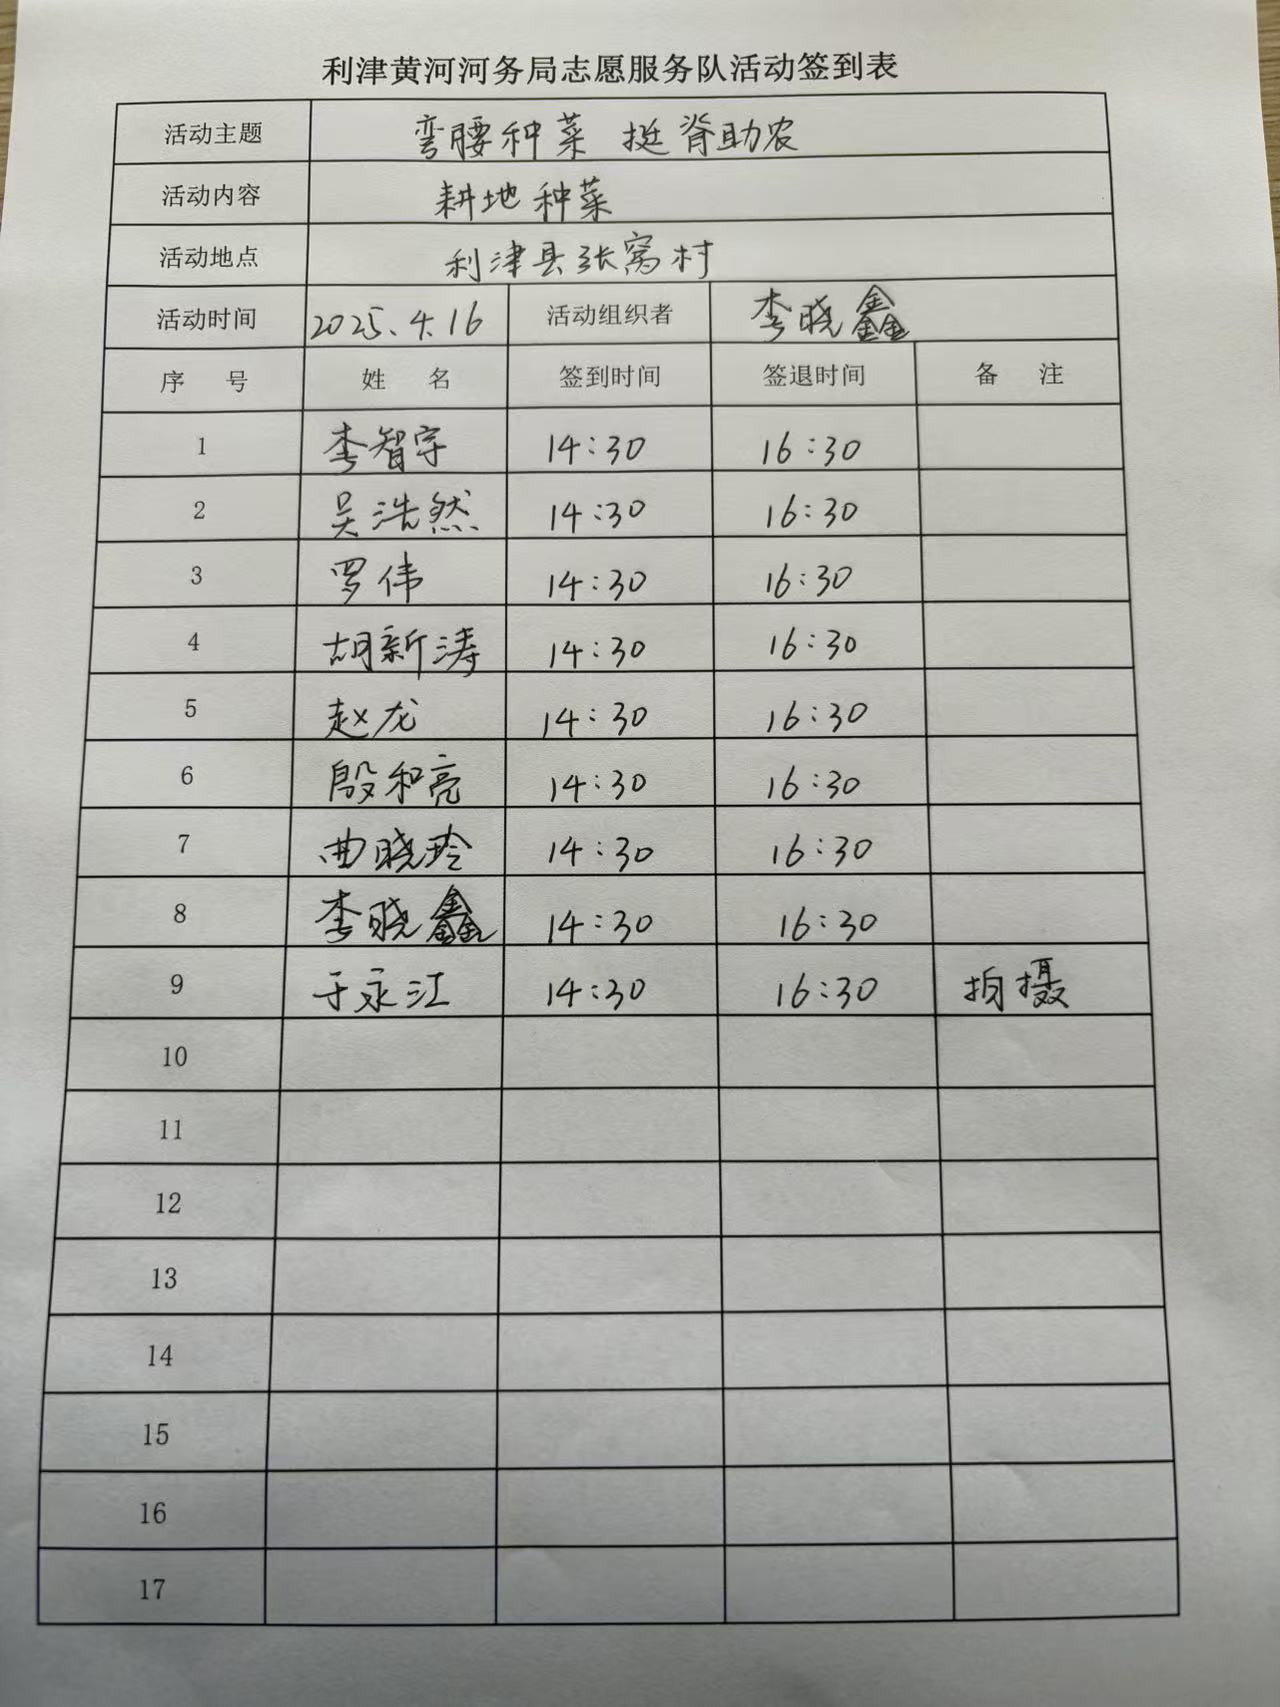 利津黄河河务局志愿服务队活动签到表
活动主题 弯腰种菜 挺脊助农
活动内容 耕地种菜
活动地点 利津县张窝村
活动时间 2025.4.16 活动组织者 李晓鑫
序 号 姓 名 签到时间 签退时间 备 注
1 李智宇 14:30 16:30
2 吴浩然 14:30 16:30
3 罗伟 14:30 16:30
4 胡新涛 14:30 16:30
5 赵龙 14:30 16:30
6 殷和亮 14:30 16:30
7 曲晓玲 14:30 16:30
8 李晓鑫 14:30 16:30
9 于永江 14:30 16:30 拍摄
10
11
12
13
14
15
16
17